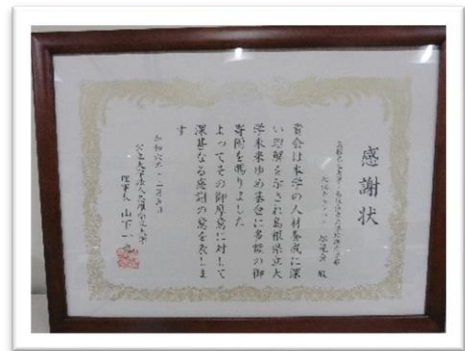 感謝状
殿
貴会は本学の人材養成に深
い理解を示され島根県立大
学未来ゆめ基金に多額の御
寄附を賜りました
よってその御厚意に対して
深甚なる感謝の意を表しま
す
令和六年十二月
公立大学法人島根県立大学
理事長 山下一也